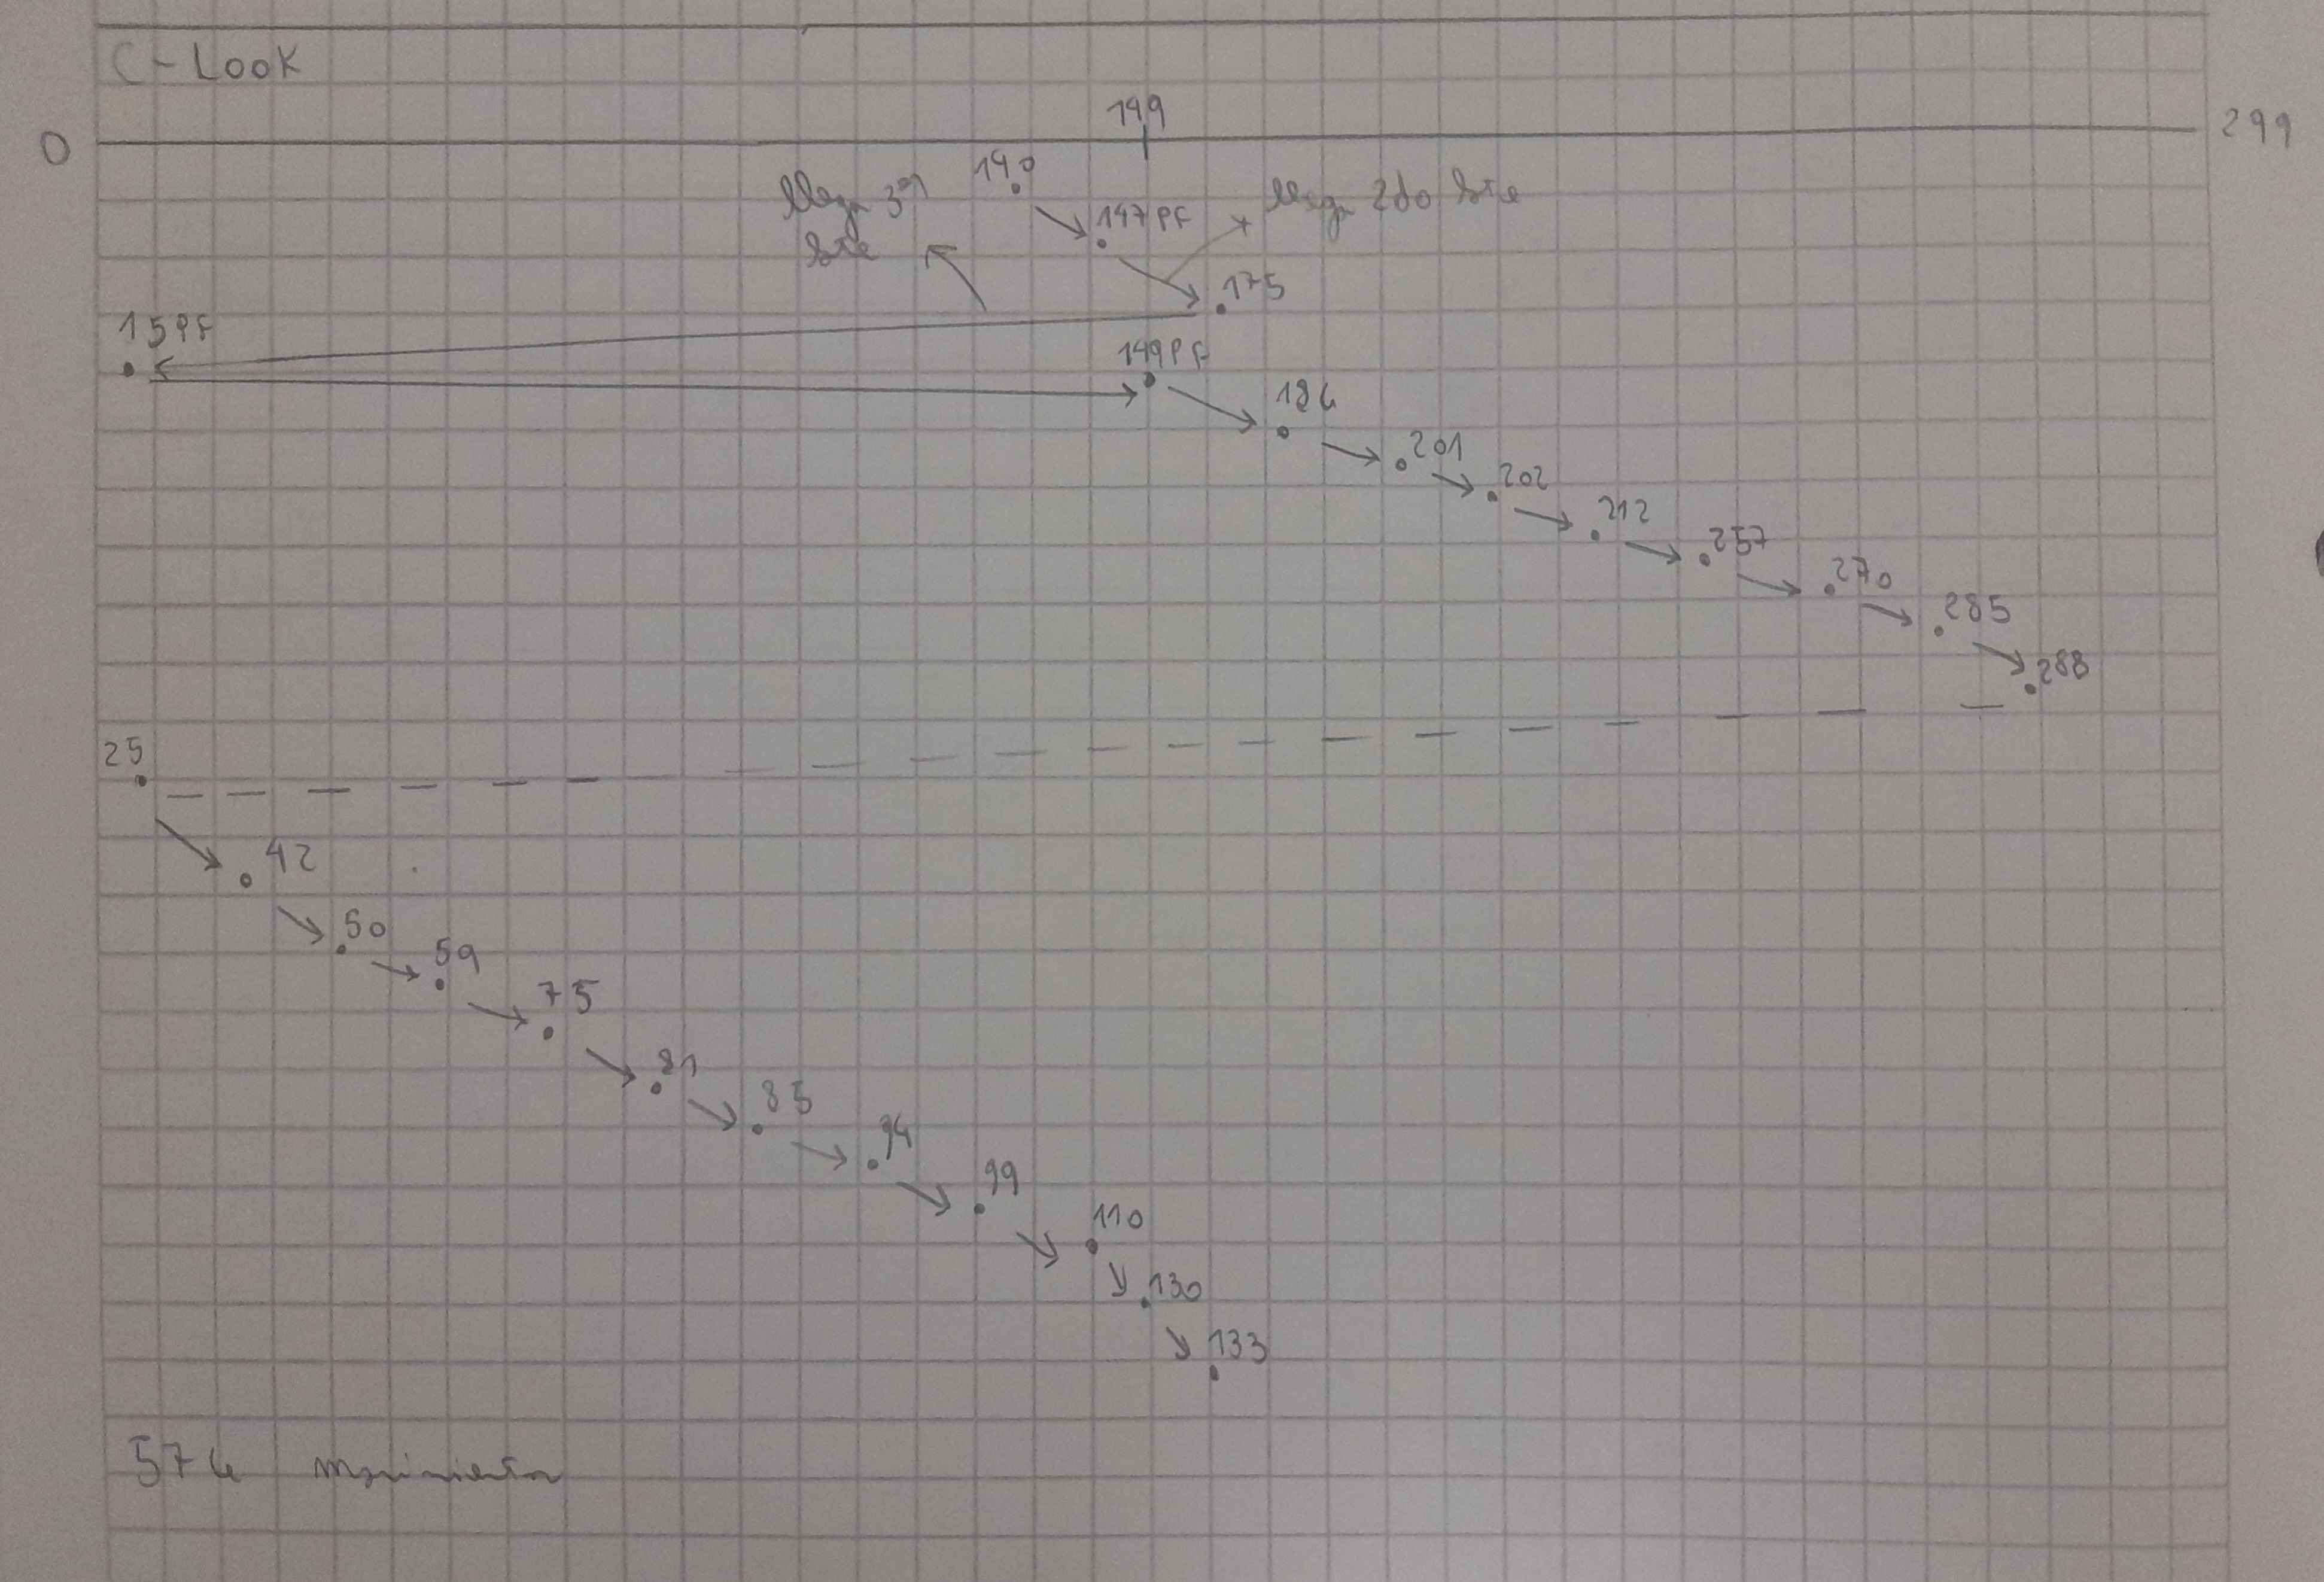 C-Look
149
0
299
140
llega 3er
lote
147 PF
llega 2do lote
175
15 PF
149 PF
186
201
202
212
257
270
285
288
25
42
50
59
75
81
85
94
99
110
130
133
576 movimientos